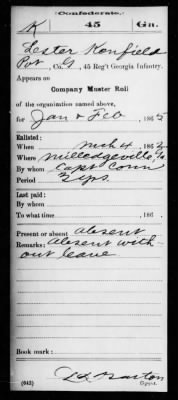 (Confederate.)
K 45 Ga.
Lester Kenfield
Pvt, Co. G, 45 Reg't Georgia Infantry.
Appears on
Company Muster Roll
of the organization named above,
for Jan & Feb, 1865
Enlisted:
When Mch 4, 186
Where Milledgeville, Ga
By whom Capt Conn
Period 3 yrs
Last paid:
By whom
To what time , 186 .
Present or absent absent
Remarks: Absent with-
out leave
Book mark:
(642) Copyist.